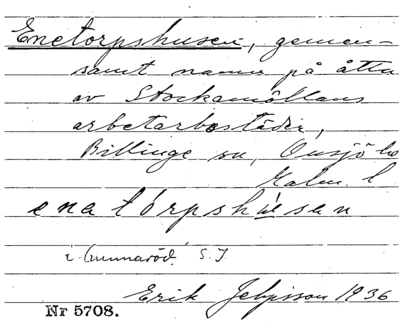 Enetorpshusen, gemen-
samt namn på åtta
av Stockamöllans
arbetarbostäder,
Billinge sn, Onsjö hd
Malm. l
enatórpshùsen
i Gunnaröd. S.I.
Erik Jeppsson 1936
Nr 5708.